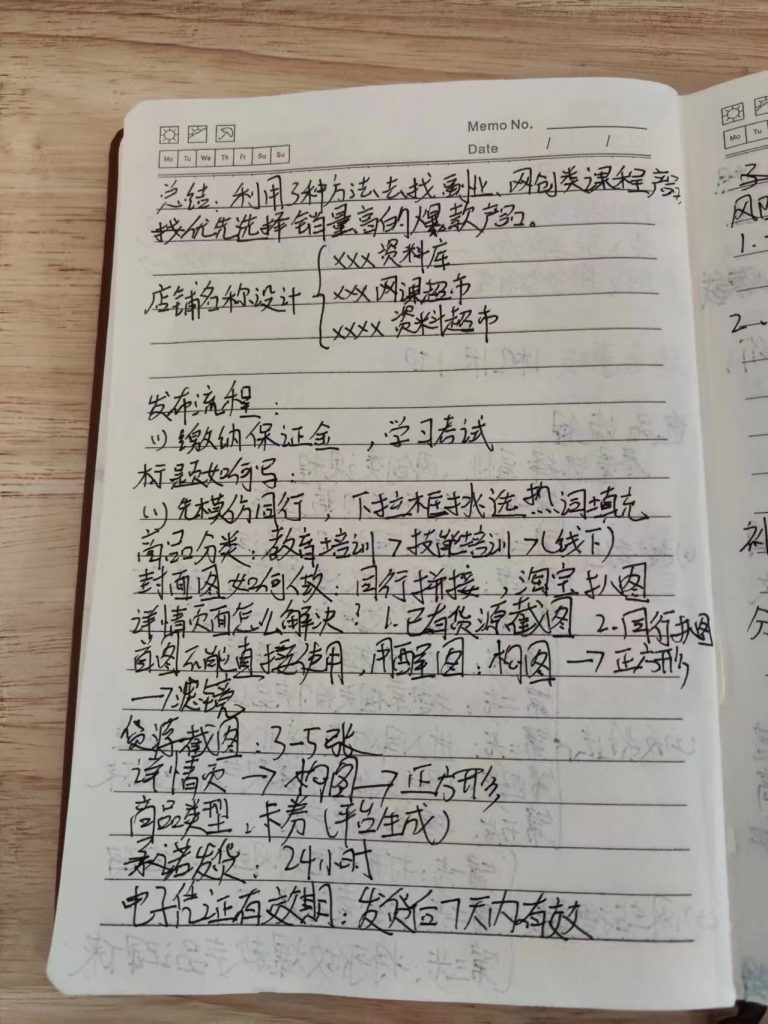 Memo No.
Date / /
Mo Tu We Th Fr Sa Su
总结：利用3种方法去找副业、网创类课程产品，
找优先选择销量高的爆款产品。
店铺名称设计
xxx资料库
xxx网课超市
xxxx资料超市
发布流程：
(1)缴纳保证金，学习考试
标题如何写：
(1)先模仿同行，下拉框挑选热词填充
商品分类：教育培训>技能培训>(线下)
封面图如何做：同行拼接，淘宝扒图
详情页面怎么解决？1.已有货源截图 2.同行扒图
首图不能直接使用，用醒图：构图→正方形
→滤镜
货源截图：3-5张
详情页→构图→正方形
商品类型：卡券(平台生成)
承诺发货：24小时
电子凭证有效期：发货后7天内有效
Mo Tu
1.
2.
补
分